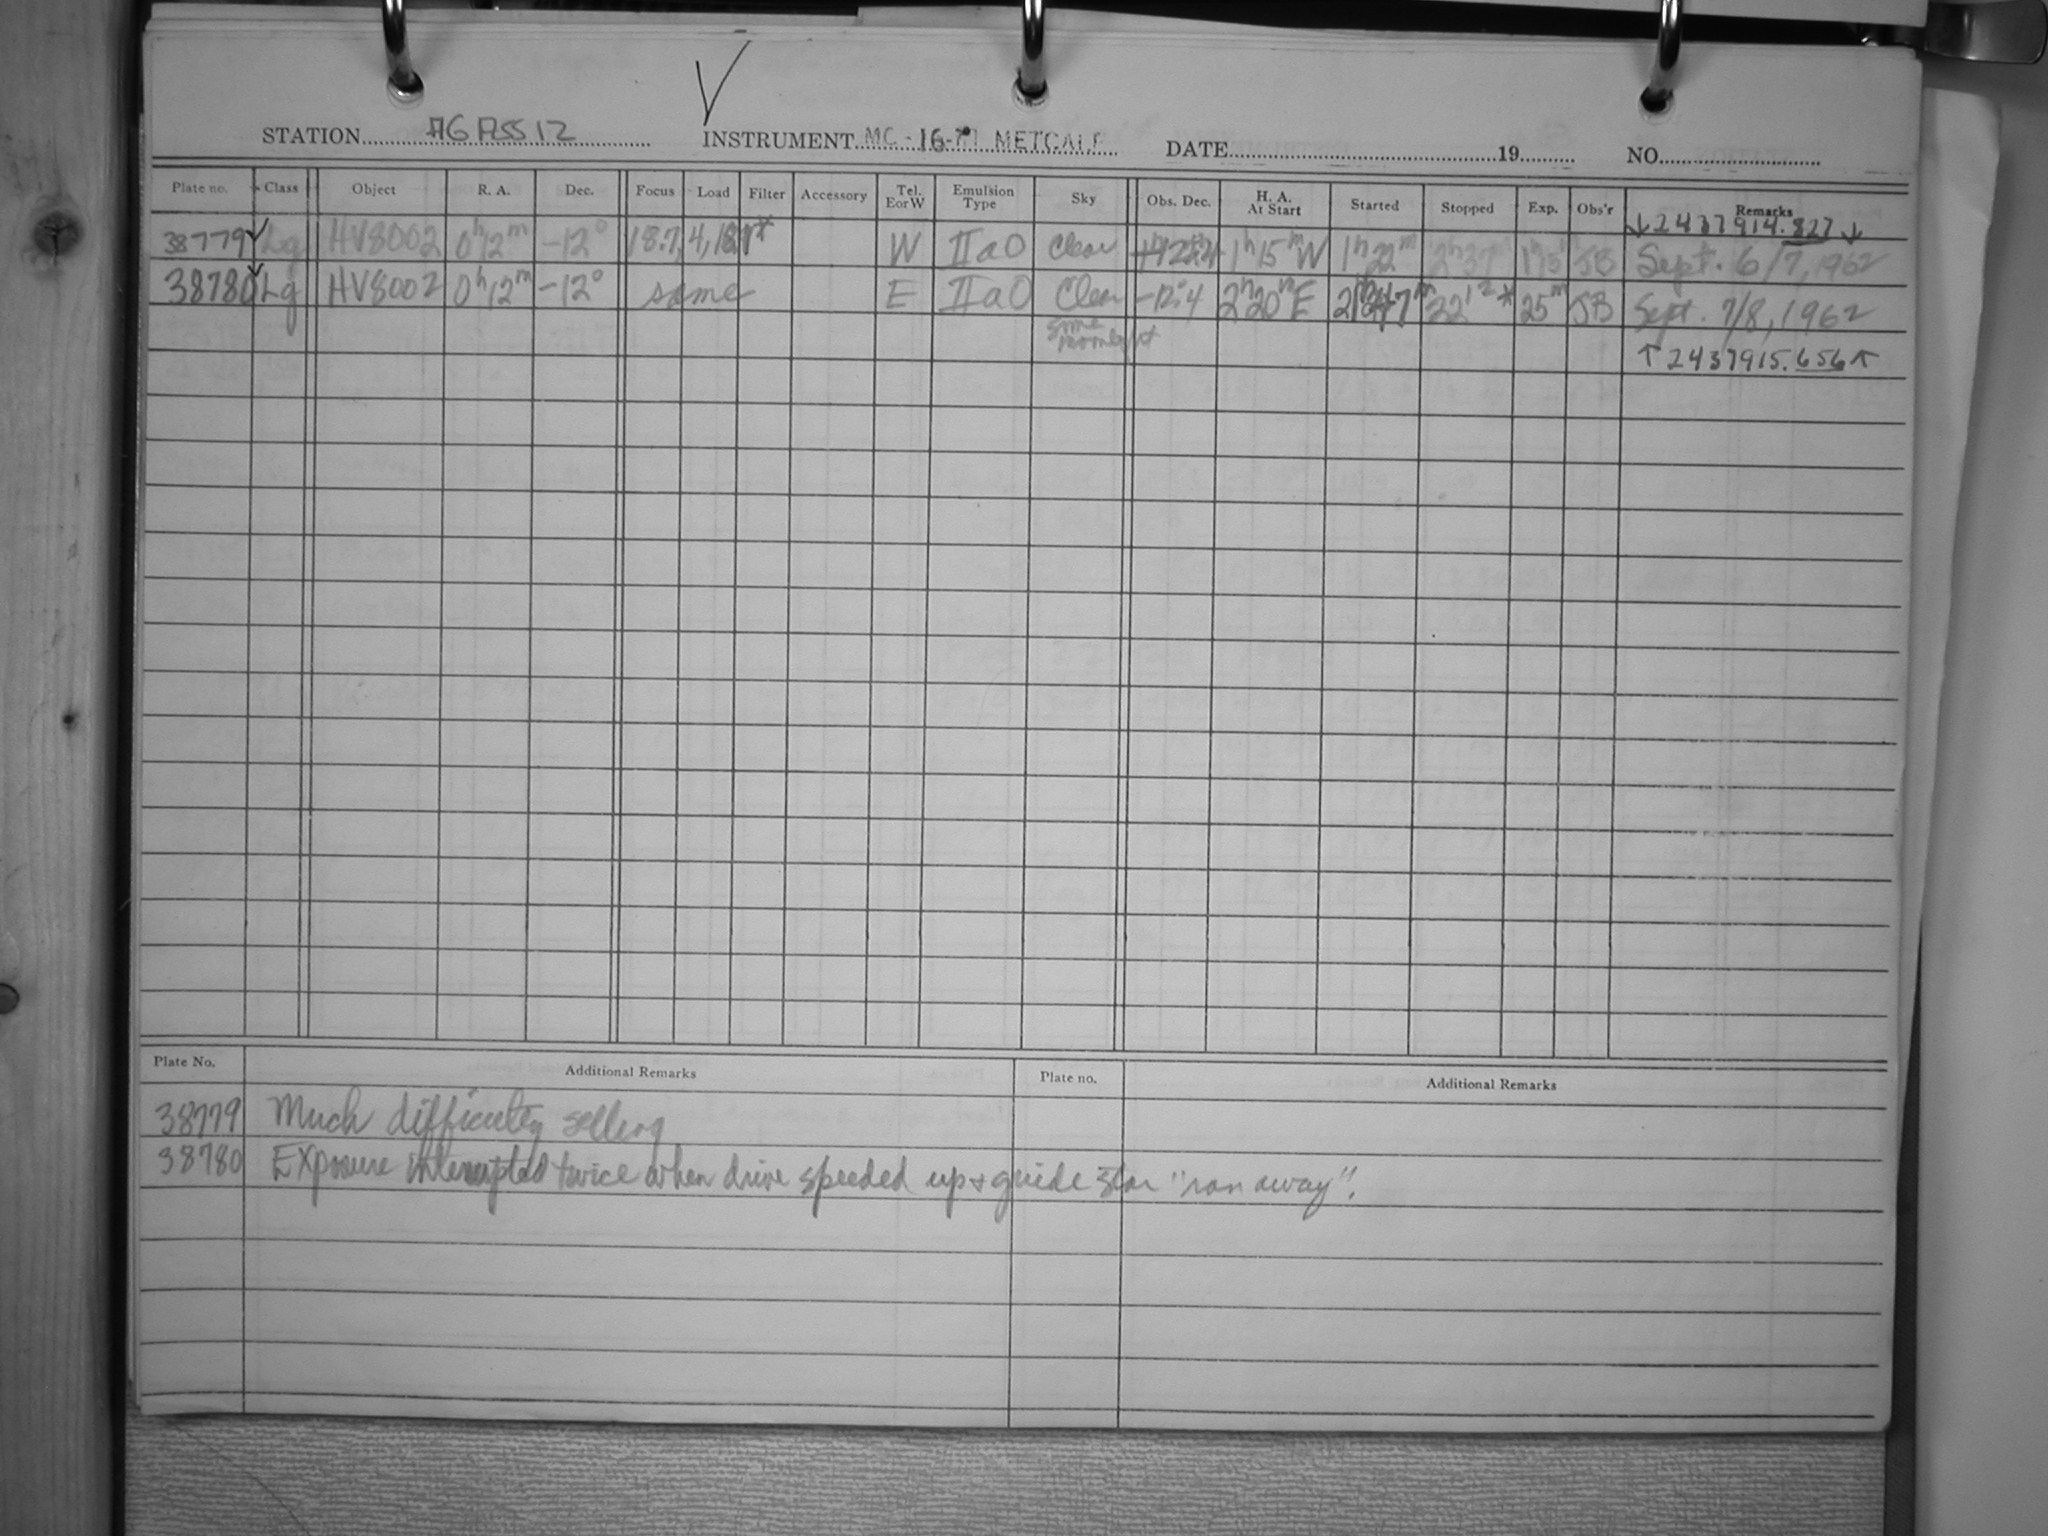 STATION AGASSIZ INSTRUMENT MC-16- METCALF DATE 19 NO.
Plate no. Class Object R. A. Dec. Focus Load Filter Accessory Tel. E or W Emulsion Type Sky Obs. Dec. H. A. At Start Started Stopped Exp. Obs'r Remarks
↓2437914.827↓
38779✓ Lg HV8002 0h12m -12° 18.7, 4, W IIaO Clear 1h15mW 1h22m 2h37m JB Sept. 6/7, 1962
38780✓ Lg HV8002 0h12m -12° same E IIaO Clear -12°.4 2h20mE 25m JB Sept. 7/8, 1962
some moonlight
↑2437915.656↑
Plate No. Additional Remarks Plate no. Additional Remarks
38779 Much difficulty setting
38780 Exposure interrupted twice when drive speeded up + guide star "ran away".